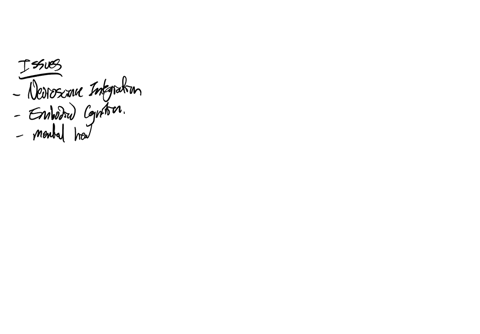 Issues
- Neuroscience Integration
- Embodied Cognition.
- mental hea